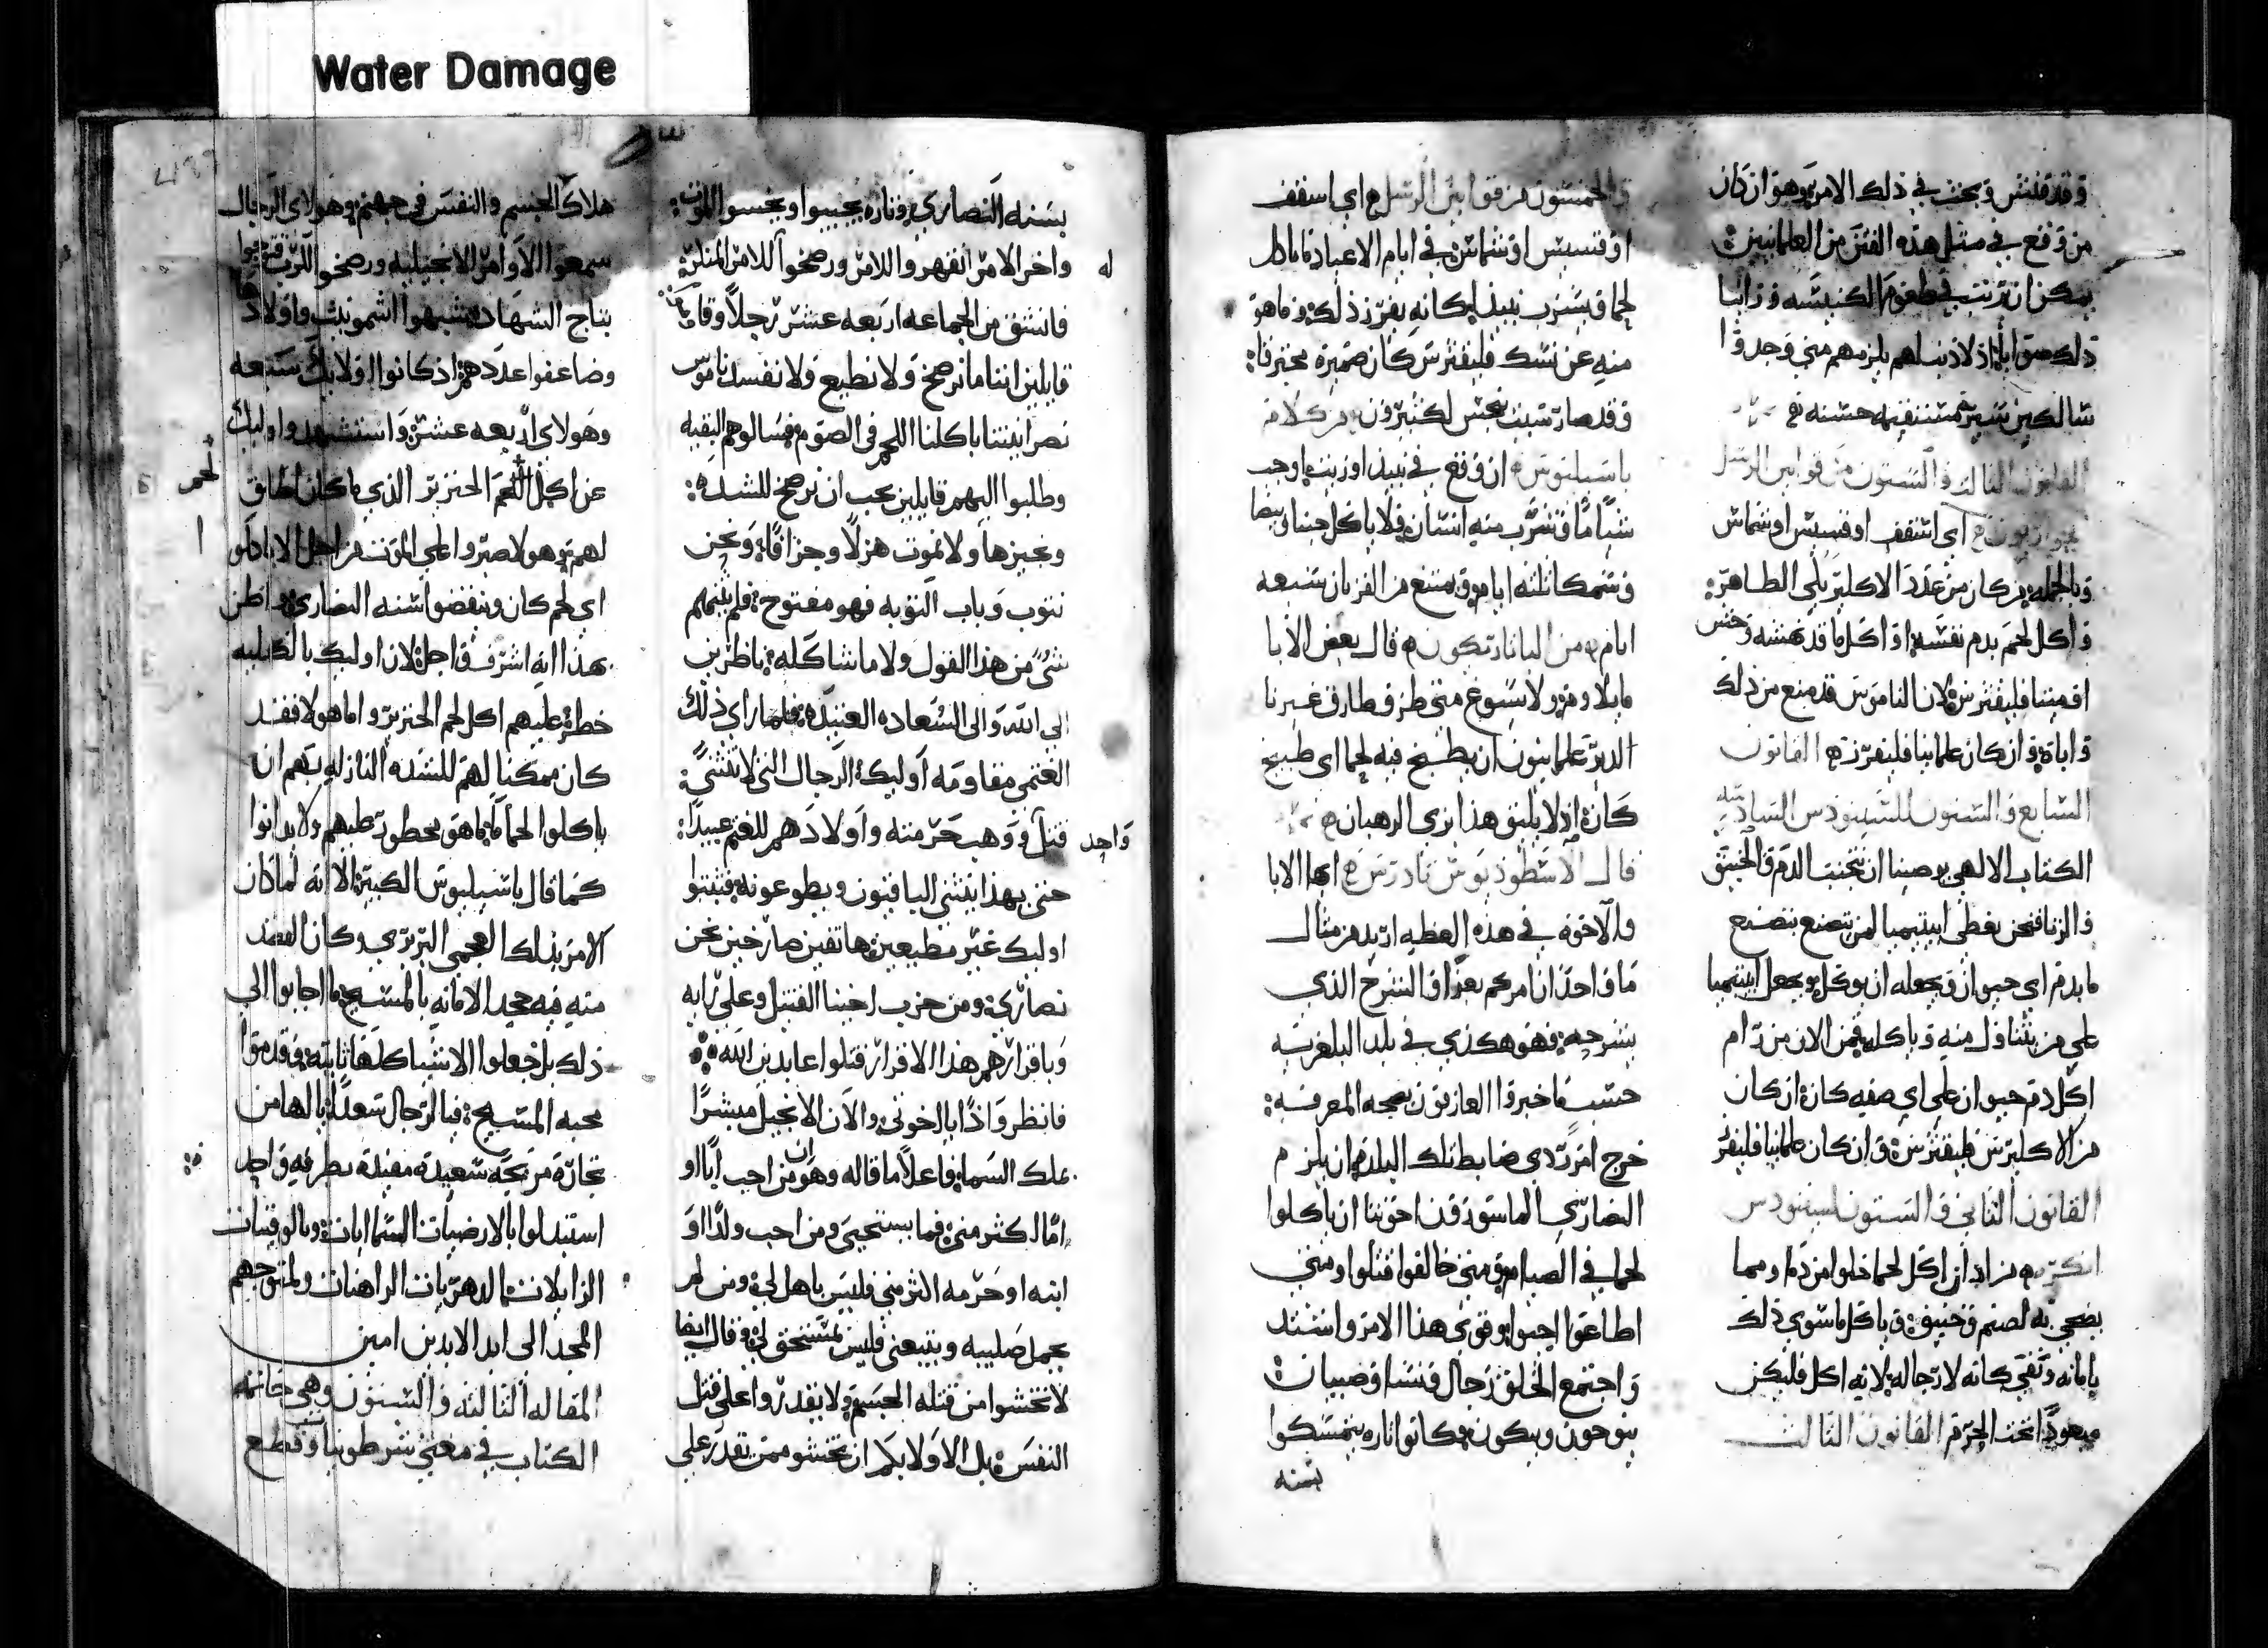 Water Damage
وقد فتش وبحث في ذلك الامر وهو ان كان
من وقع في مثل هذه الفتن من العلمانيين
يمكن ان يرتب في طغمة الكنيسه
ذلك اذ لا ذنب لهم يلزمهم متى وجدوا
سالكين سيره مستقيمه حسنه
القانون الثالث والستون من قوانين الرسل
اي اسقف او قسيس او شماس
وبالجمله من كان من عدد الاكليرس الطاهر
واكل لحم بدم نفسه او اكل ما قد نهشه وحش
او ميتا فليقترس لان الناموس قد منع من ذلك
واباه وان كان علمانيا فليفرز القانون
السابع والستون للسينودس السادسه
الكتاب الالهي يوصينا ان نتجنب الدم والخنيق
والزنا فنحن نعطي ابيتيميا لمن يتصنع بتصنع
ما بدم اي حيوان ويجعله ان يوكل ويجعل ابيتيميا
على من يتناول منه وياكله فمن الان من رام
اكل دم حيوان على اي صفه كانه ان كان
من الاكليرس فليقترس وان كان علمانيا فليفرز
القانون الثاني والستون لسينودس
انكره من اذا ازا اكل لحما خلوا من دم او مما
يضحي به لصنم وخنيق وياكل ما سوي ذلك
بامانه وتقي كانه لا رجا له لانه اكل فليكن
مبعودا تحت الجرم القانون الثالث
والخمسون من قوانين الرسل اي اسقف
او قسيس او شماس في ايام الاعياد ما ياكل
لحما ويشرب نبيذا كانه يفرز ذلك وما هو
منه عن نسك فليقترس كان ضميره محترقا
وقد صار سبب نجس لكثيرون من كلام
باسيليوس ان وقع في نبيذ او زيت او جب
شيا ما وشرب منه انسان فلا ياكل جبنا وبيضا
وسمكا ثلثه ايام ويمتنع من القربان سبعه
ايام من البابا نيكون قال بعض الابا
ما يلاومه ولا يسوغ متى طرق طارق غريبا
الدير علمانيون ان يطبخ فيه لحما اي طبيخ
كانه اذ لا يليق هذا بزي الرهبان
قال الاسطوديوس تاودرس ايها الابا
والاخوه في هذه العظيه اريد من مثال
ما واحد ان امركم بعد او الشرح الذي
يشرحه فهو هكذي في بلد البلغريه
حسب ما اخبروا العارفون بصحه المعرفه
خرج امر ردي ضابط تلك البلده ان يلزم
النصارى الماسورون اخوتنا ان ياكلوا
لحما في الصيام ومتى خالفوا قتلوا ومتى
اطاعوا احيوا وقوي هذا الامر واشتد
واجتمع الخلق رجال ونسا وصبيان
ينوحون ويبكون وكانوا تاره يتمسكوا
بسنه
بسنه النصارى وتاره يجيبوا ويخسوا الموت
واخر الامر القهر والامر ورضخوا للامر المنكر
فانشق من الجماعه اربعه عشر رجلا
قايلين اننا ما نرضخ ولا نطيع ولا نفسد ناموس
نصرانيتنا باكلنا اللحم في الصوم فسالوهم البقيه
وطلبوا اليهم قايلين يجب ان نرضخ للشده
ونجيزها ولا نموت هزلا وجزافا ونحن
نتوب وباب التوبه فهو مفتوح فلم يميلهم
شئ من هذا القول ولا ما شاكله ناظرين
الى الله والى السعاده العتيده فلما راي ذلك
الغتمي مقاومه اوليك الرجال التي لا تنثني
قتل واحد ووهب حرمته واولادهم للغتم عبيدا
حتى بهذا ينثني الباقيون ويطوعونه فثبتوا
اوليك غير مطيعين هاتفين صارخين نحن
نصارى ومن حزب اخينا القتيل وعلى رايه
وباقرارهم هذا الاقرار قتلوا عابدين الله
فانظروا اذا يا اخوتي والان الانجيل مبشرا
ملك السما فاعلا ما قاله وهو ان من احب ابا او
اما اكثر مني فما يستحقي ومن احب ولدا او
ابنه او حرمه اكثر مني فليس باهل لي ومن لم
يحمل صليبه ويتبعني فليس بمستحق لي وقال ايضا
لا تخشوا من قتله الجسم ولا يقدروا على قتل
النفس بل الاولا بكم ان تخشو ممن يقدر على
له
واحد
هلاك الجسم والنفس في جهنم وهولاي الرجال
سمعوا الاوامر الانجيليه ورضخوا للرب فتوجوا
بتاج الشهاده شبهوا اشمونيت واولادها
وضاعفوا عددهم اذ كانوا اولايك سبعه
وهولاي اربعه عشر واستشهدوا اوليك
عن اكل لحم الخنزير الذي ما كان اطاق
لهم وهولا صبروا على الموت من اجل الا ياكلوا
اي لحم كان وينقضوا سنه النصارى واظن
هذا انه اشرف واجل لان اوليك بالكليه
خطر عليهم اكل لحم الخنزير واما هولا فقد
كان ممكنا لهم للشده النازله بهم ان
ياكلوا لحما ما ما هو محظور عليهم ولا يدانوا
كما قال باسيليوس الكبير الا انه لما كان
الامر بذلك العجمي البربري وكان القصد
منه فيه جحد الامانه بالمسيح ما اجابوا الى
ذلك بل جعلوا الاشيا كلها ثابته وقدموا
محبه المسيح فيا لرجال سعدا يا لها من
تجاره مربحه سعيده مفيده بطرفه واحد
استبدلوا بالارضيات السماييات وبالوقتيات
الزايلات الدهريات الراهنات ولمتوجهم
المجد الى ابد الابدين امين
المقاله الثالثه والستون وهي خاتمه
الكتاب في معنى شرطونيا وقطع
لحم